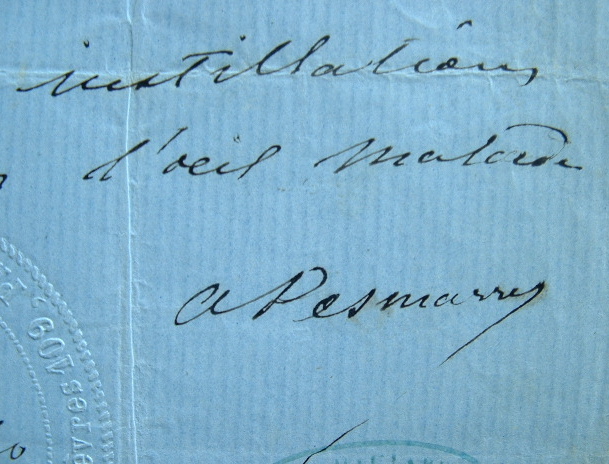 instillations
l'oeil malade
A Desmarres